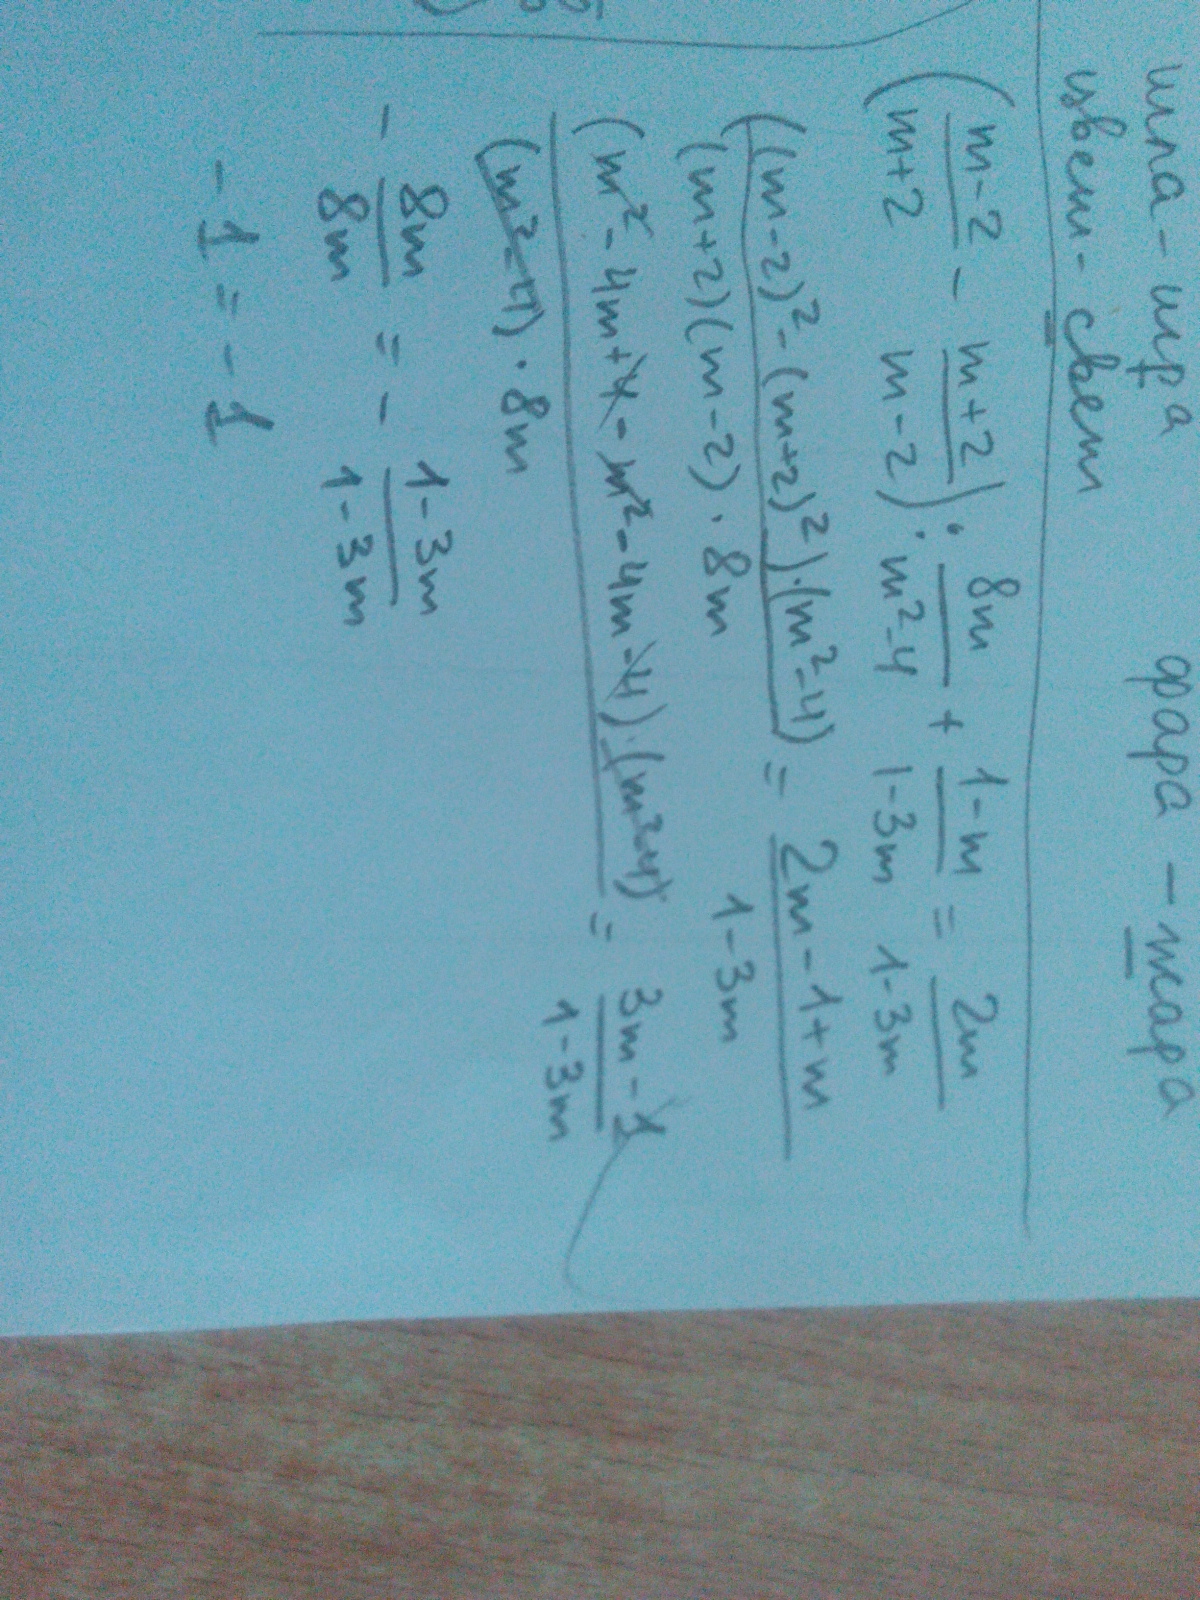 шла - шра фара - жара
цвет - свет
(m-2/m+2 - m+2/m-2) : 8m/m²-4 + 1-m/1-3m = 2m/1-3m
((m-2)² - (m+2)²)·(m²-4)/(m+2)(m-2)·8m = 2m-1+m/1-3m
(m²-4m+4-m²-4m-4)·(m²-4)/(m²-4)·8m = 3m-1/1-3m
- 8m/8m = - 1-3m/1-3m
-1 = -1